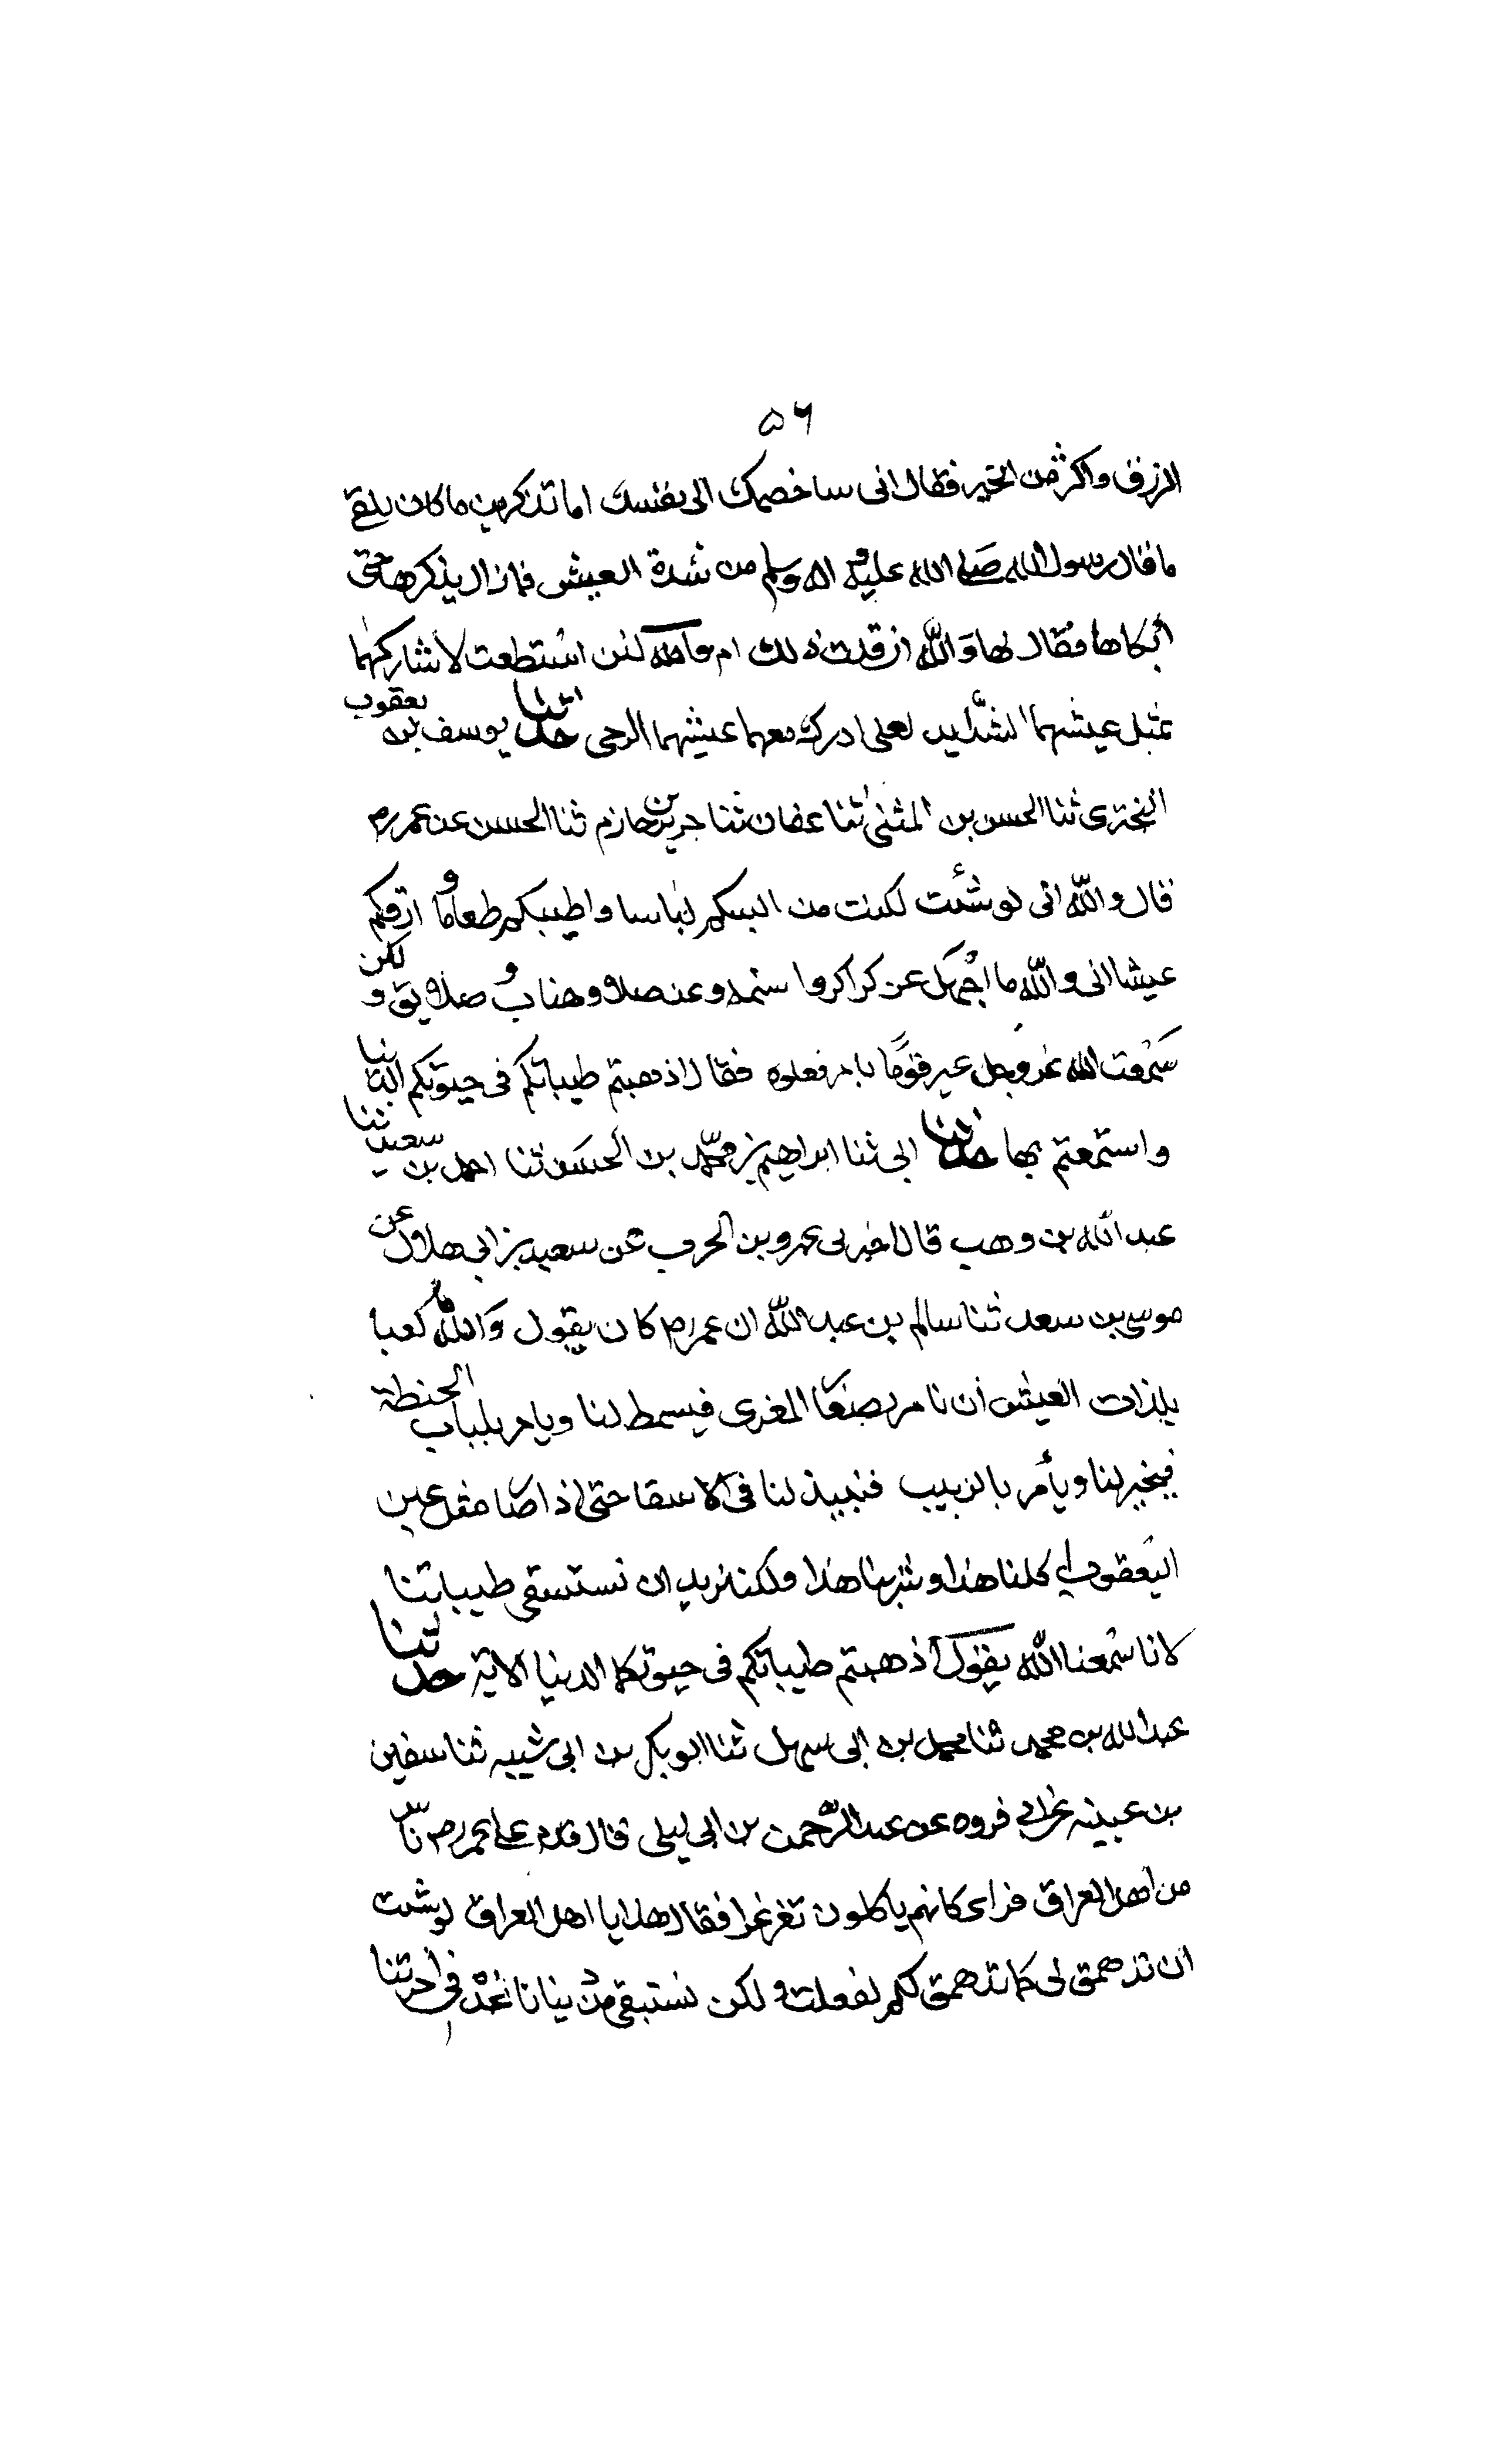 ۵۶
الرزق واكثر من الخير فقال انى ساخصمك الى نفسك اما تذكرين ما كان يلقى
ما قال رسول الله صلى الله عليه واله وسلم من شدة العيش فما زال يذكرها حتى
ابكاها فقال لها والله ان قلت ذلك ام والله لئن استطعت لاشاركنهما
بمثل عيشهما الشديد لعلى ادرك معهما عيشهما الرخى حدثنا يوسف بن يعقوب
النجترى ثنا الحسن بن المثنى ثنا عفان ثنا جرير بن حازم ثنا الحسن عن عمر رم
قال والله انى لو شئت لكنت من البسكم لباسا واطيبكم طعاما وارقكم
عيشا انى والله ما اجهل عن كراكر واسنمه وعن صلا وهناب وصلايق ولكن
سمعت الله عز وجل عير قوما بامر فعلوه فقال اذهبتم طيباتكم فى حيوتكم الدنيا
واستمعتم بها حدثنا ابى ثنا ابراهيم بن محمد بن الحسن ثنا احمد بن سعيد ثنا
عبد الله بن وهب قال اخبرنى عمرو بن الحرث عن سعيد بن ابى هلال عن
موسى بن سعد ثنا سالم بن عبد الله ان عمر رم كان يقول والله ما نعبا
بلذات العيش ان نامر بصغا المغرى فيسمط لنا ويامر بلباب الحنطة
فيخبز لنا ويأمر بالزبيب فنبيذ لنا فى الاسقا حتى اذا صا مثل عين
اليعقوب اكلنا هذا وشربنا هذا ولكنا نريد ان نستبقى طيباتنا
لانا سمعنا الله يقول اذهبتم طيباتكم فى حيوتكم الدنيا الاية حدثنا
عبد الله بن محمد ثنا محمد بن ابى سهل ثنا ابو بكر بن ابى شيبه ثنا سفين
بن عيينه عن ابى فروه عن عبد الرحمن بن ابى ليلى قال قدم على عمر رم ناس
من اهل العراق فراى كانهم ياكلون تغرغرا فقال هذا يا اهل العراق لو شئت
ان تدهمق لى كما تدهمق لكم لفعلت ولكن نستبقى من دنيانا نجد فى اخرتنا